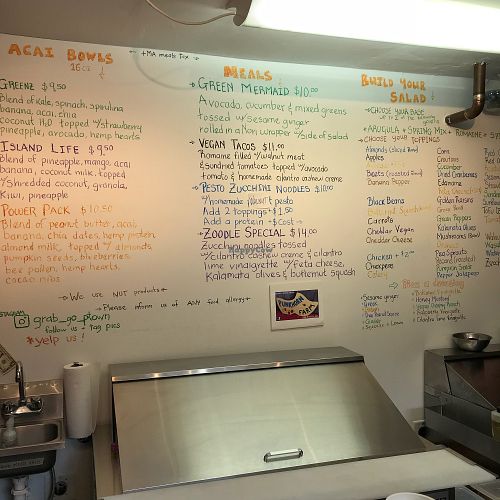 ACAI BOWLS
16oz
+MA meals tax
GREENZ $9.50
Blend of kale, spinach, spirulina
banana, acai, chia
coconut H2O topped w/strawberry
pineapple, avocado, hemp hearts
ISLAND LIFE $9.50
Blend of pineapple, mango, acai
banana, coconut milk, topped
w/shredded coconut, granola,
Kiwi, pineapple
POWER PACK $10.50
Blend of peanut butter, acai,
banana, chia, dates, hemp protein
almond milk, topped w/ almonds,
pumpkin seeds, blueberries
bee pollen, hemp hearts,
cacao nibs
We use NUT products
Please inform us of ANY food allergy
INSTAGRAM
grab_go_grown
follow us & tag pics
*yelp us!
MEALS
GREEN MERMAID $10.00
Avocado, cucumber & mixed greens
tossed w/ sesame ginger
rolled in a Nori wrapper w/side of salad
VEGAN TACOS $11.00
Romaine filled w/walnut meat
& sundried tomatoes topped w/avocado
tomato & homemade cilantro cashew creme
PESTO ZUCCHINI NOODLES $10.00
w/homemade walnut pesto
Add 2 toppings + $1.50
Add a protein + $Cost
ZOODLE SPECIAL $14.00
Zucchini noodles tossed
w/cilantro cashew creme & cilantro
lime vinaigrette w/feta cheese,
Kalamata olives & butternut squash
HappyCow
BUILD YOUR
SALAD
CHOOSE YOUR BASE
ARUGULA + SPRING MIX + ROMAINE
CHOOSE YOUR TOPPINGS
Apples
Beets (roasted)
Banana Pepper
Black Beans
Butternut Squash
Carrots
Cheddar Vegan
Cheddar Cheese
Chicken + $2.00
Chickpeas
Corn
Croutons
Cucumber
Dried Cranberries
Edamame
Feta Cheese
Golden Raisins
Green Peppers
Kalamata Olives
Mushrooms
Onions
Pea Sprouts
Pecans
Pumpkin Seeds
Pepper Jalapeno
Sesame ginger
Greek
Honey Mustard
Balsamic Vinaigrette
Cilantro lime Vinaigrette